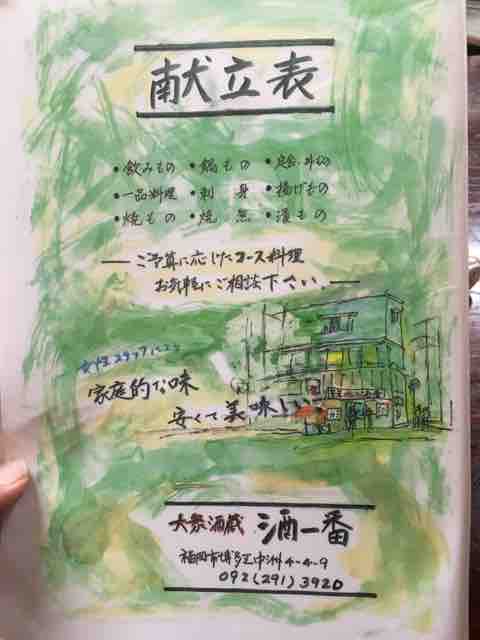 献立表
・飲みもの ・鍋もの ・定食・丼もの
・一品料理 ・刺身 ・揚げもの
・焼もの ・焼魚 ・漬もの
― ご予算に応じたコース料理
お気軽にご相談下さい。―
女性スタッフによる
家庭的な味
安くて美味しい
大衆酒蔵 酒一番
福岡市博多区中洲4-4-9
092(291)3920